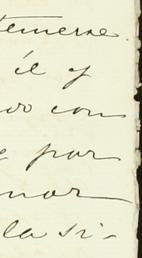 temerse.
él y
do con
por
nor
la si-